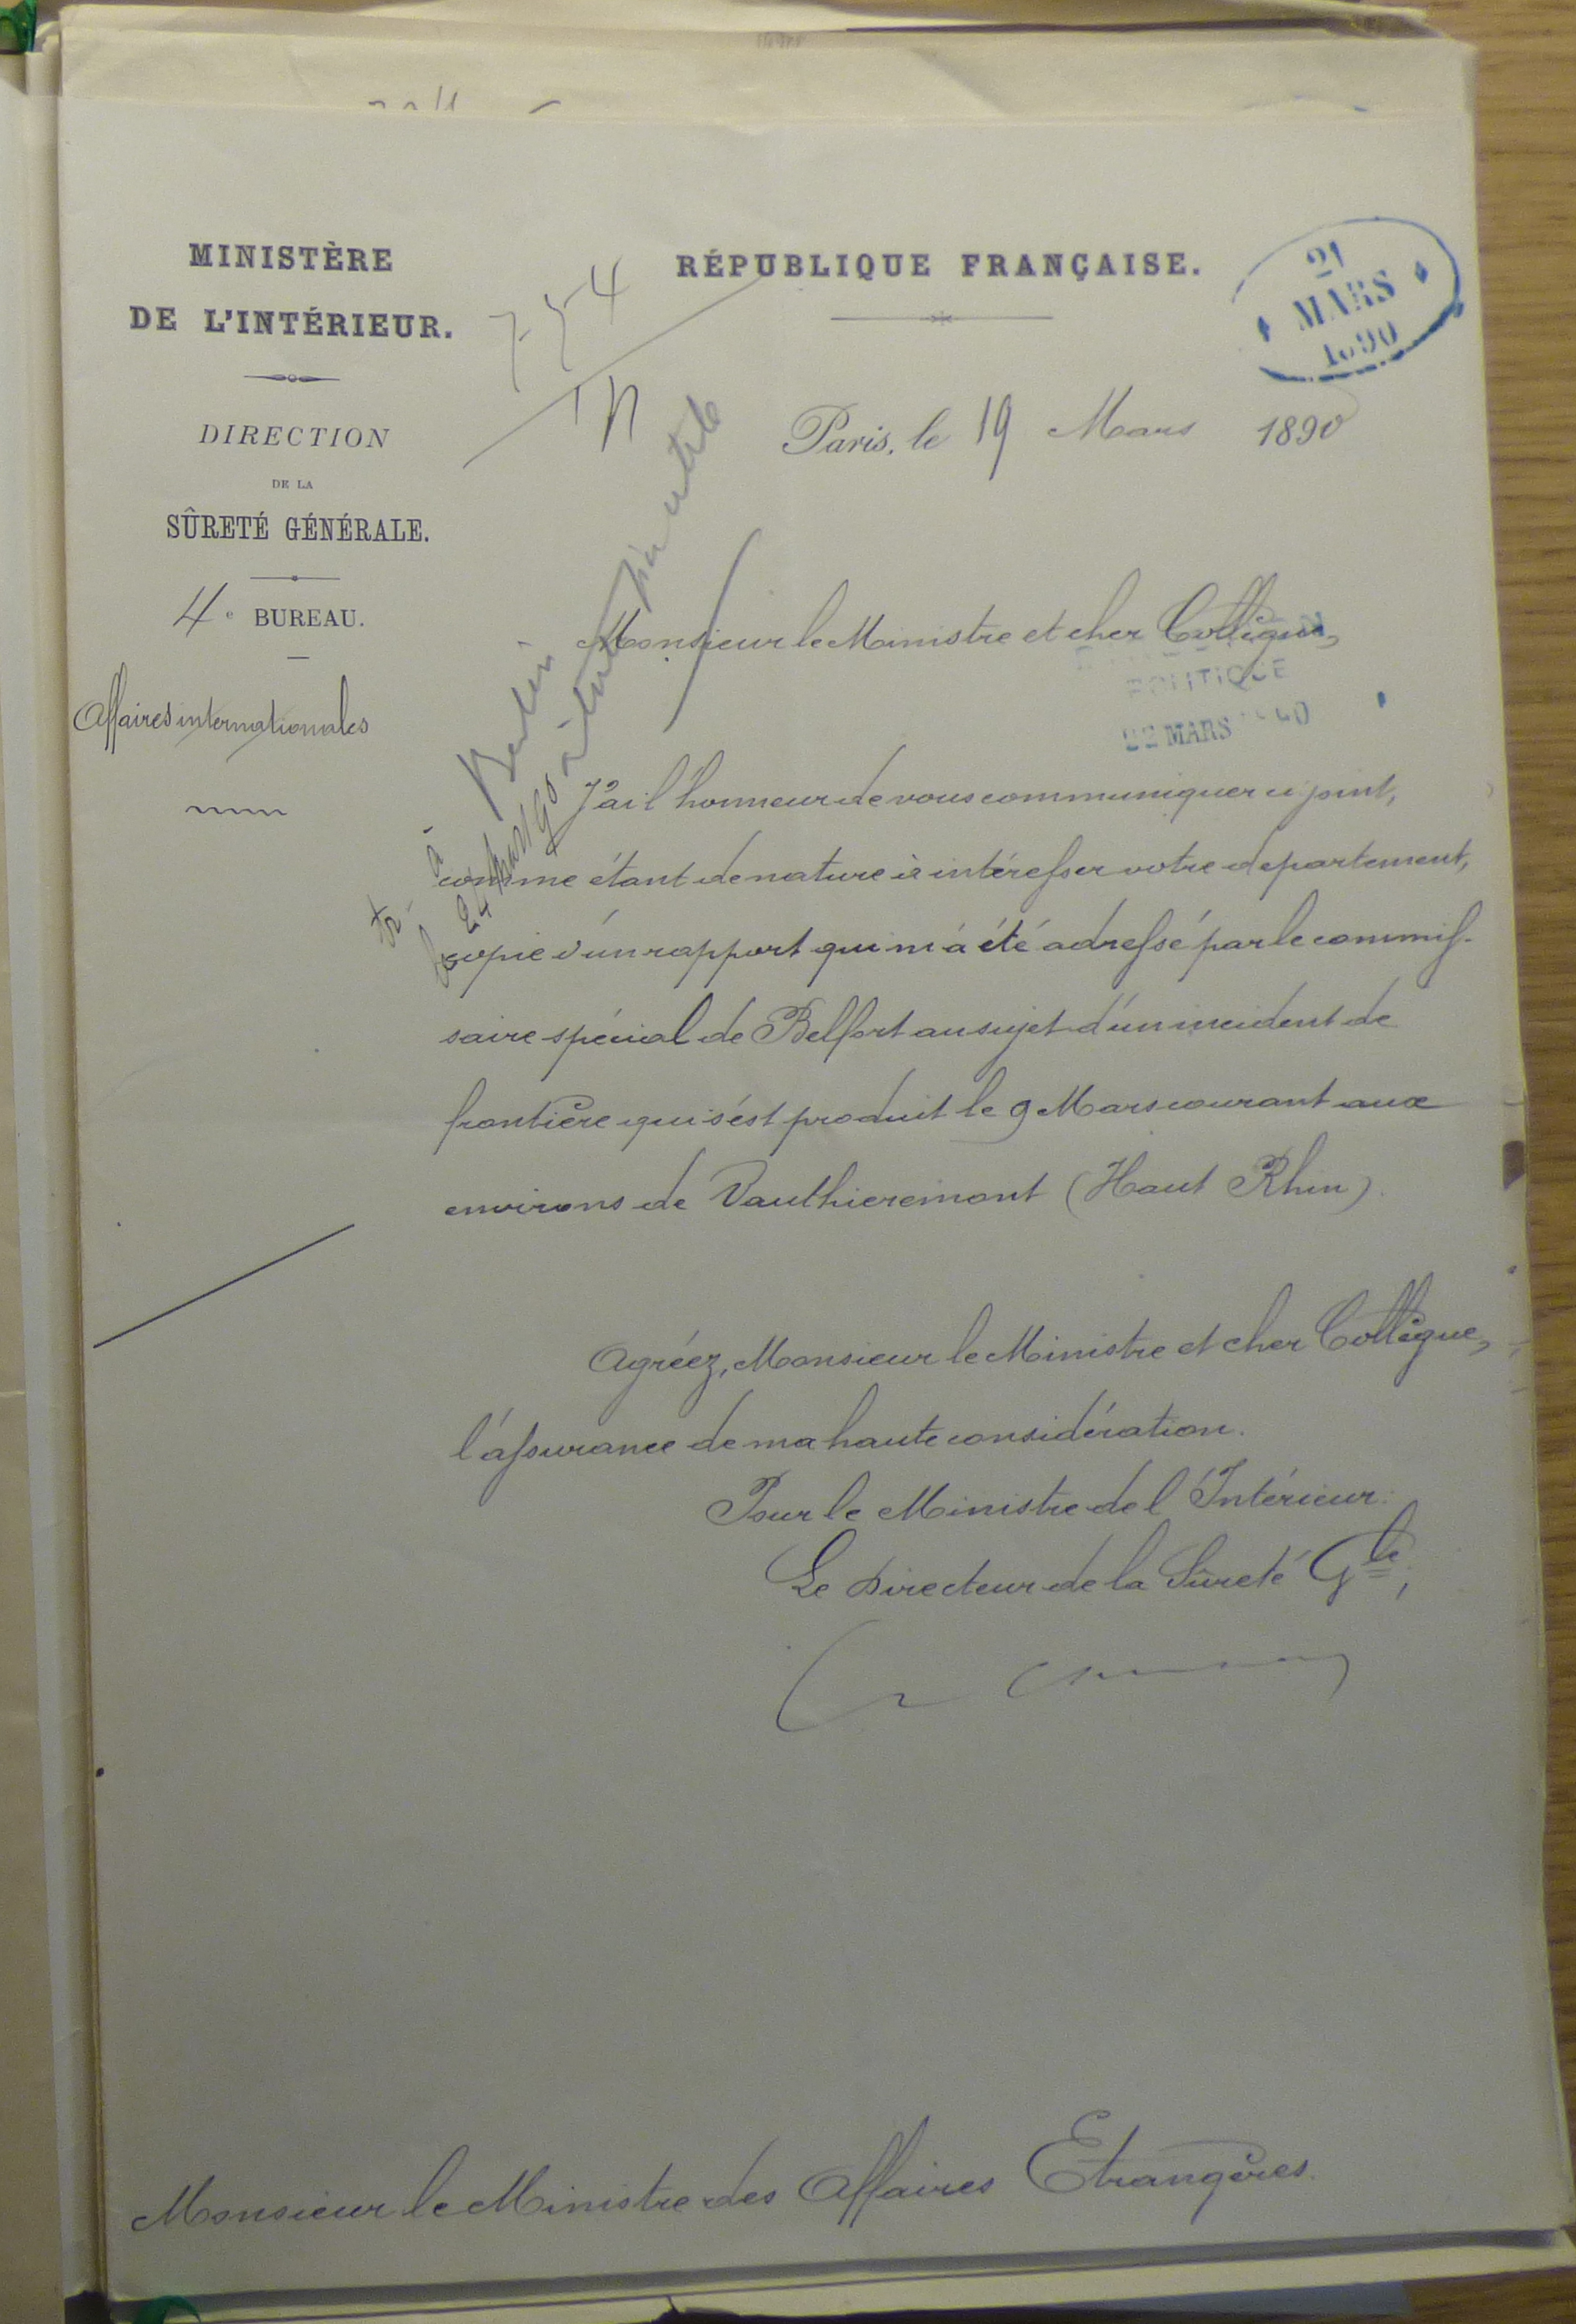 MINISTÈRE
DE L'INTÉRIEUR.
DIRECTION
DE LA
SÛRETÉ GÉNÉRALE.
4e BUREAU.
Affaires internationales
754
RÉPUBLIQUE FRANÇAISE.
21
MARS
1890
Paris, le 19 Mars 1890
Monsieur le Ministre et cher Collègue,
POLITIQUE
22 MARS
à Berlin
24 Mars 90
J'ai l'honneur de vous communiquer ci joint,
comme étant de nature à intéresser votre departement,
copie d'un rapport qui m'a été adressé par le commis-
saire spécial de Belfort au sujet d'un incident de
frontière qui s'est produit le 9 Mars courant aux
environs de Vauthieremont (Haut Rhin).
Agréez, Monsieur le Ministre et cher Collègue,
l'assurance de ma haute considération.
Pour le Ministre de l'Intérieur:
Le Directeur de la Sûreté Gle,
Monsieur le Ministre des Affaires Etrangères.